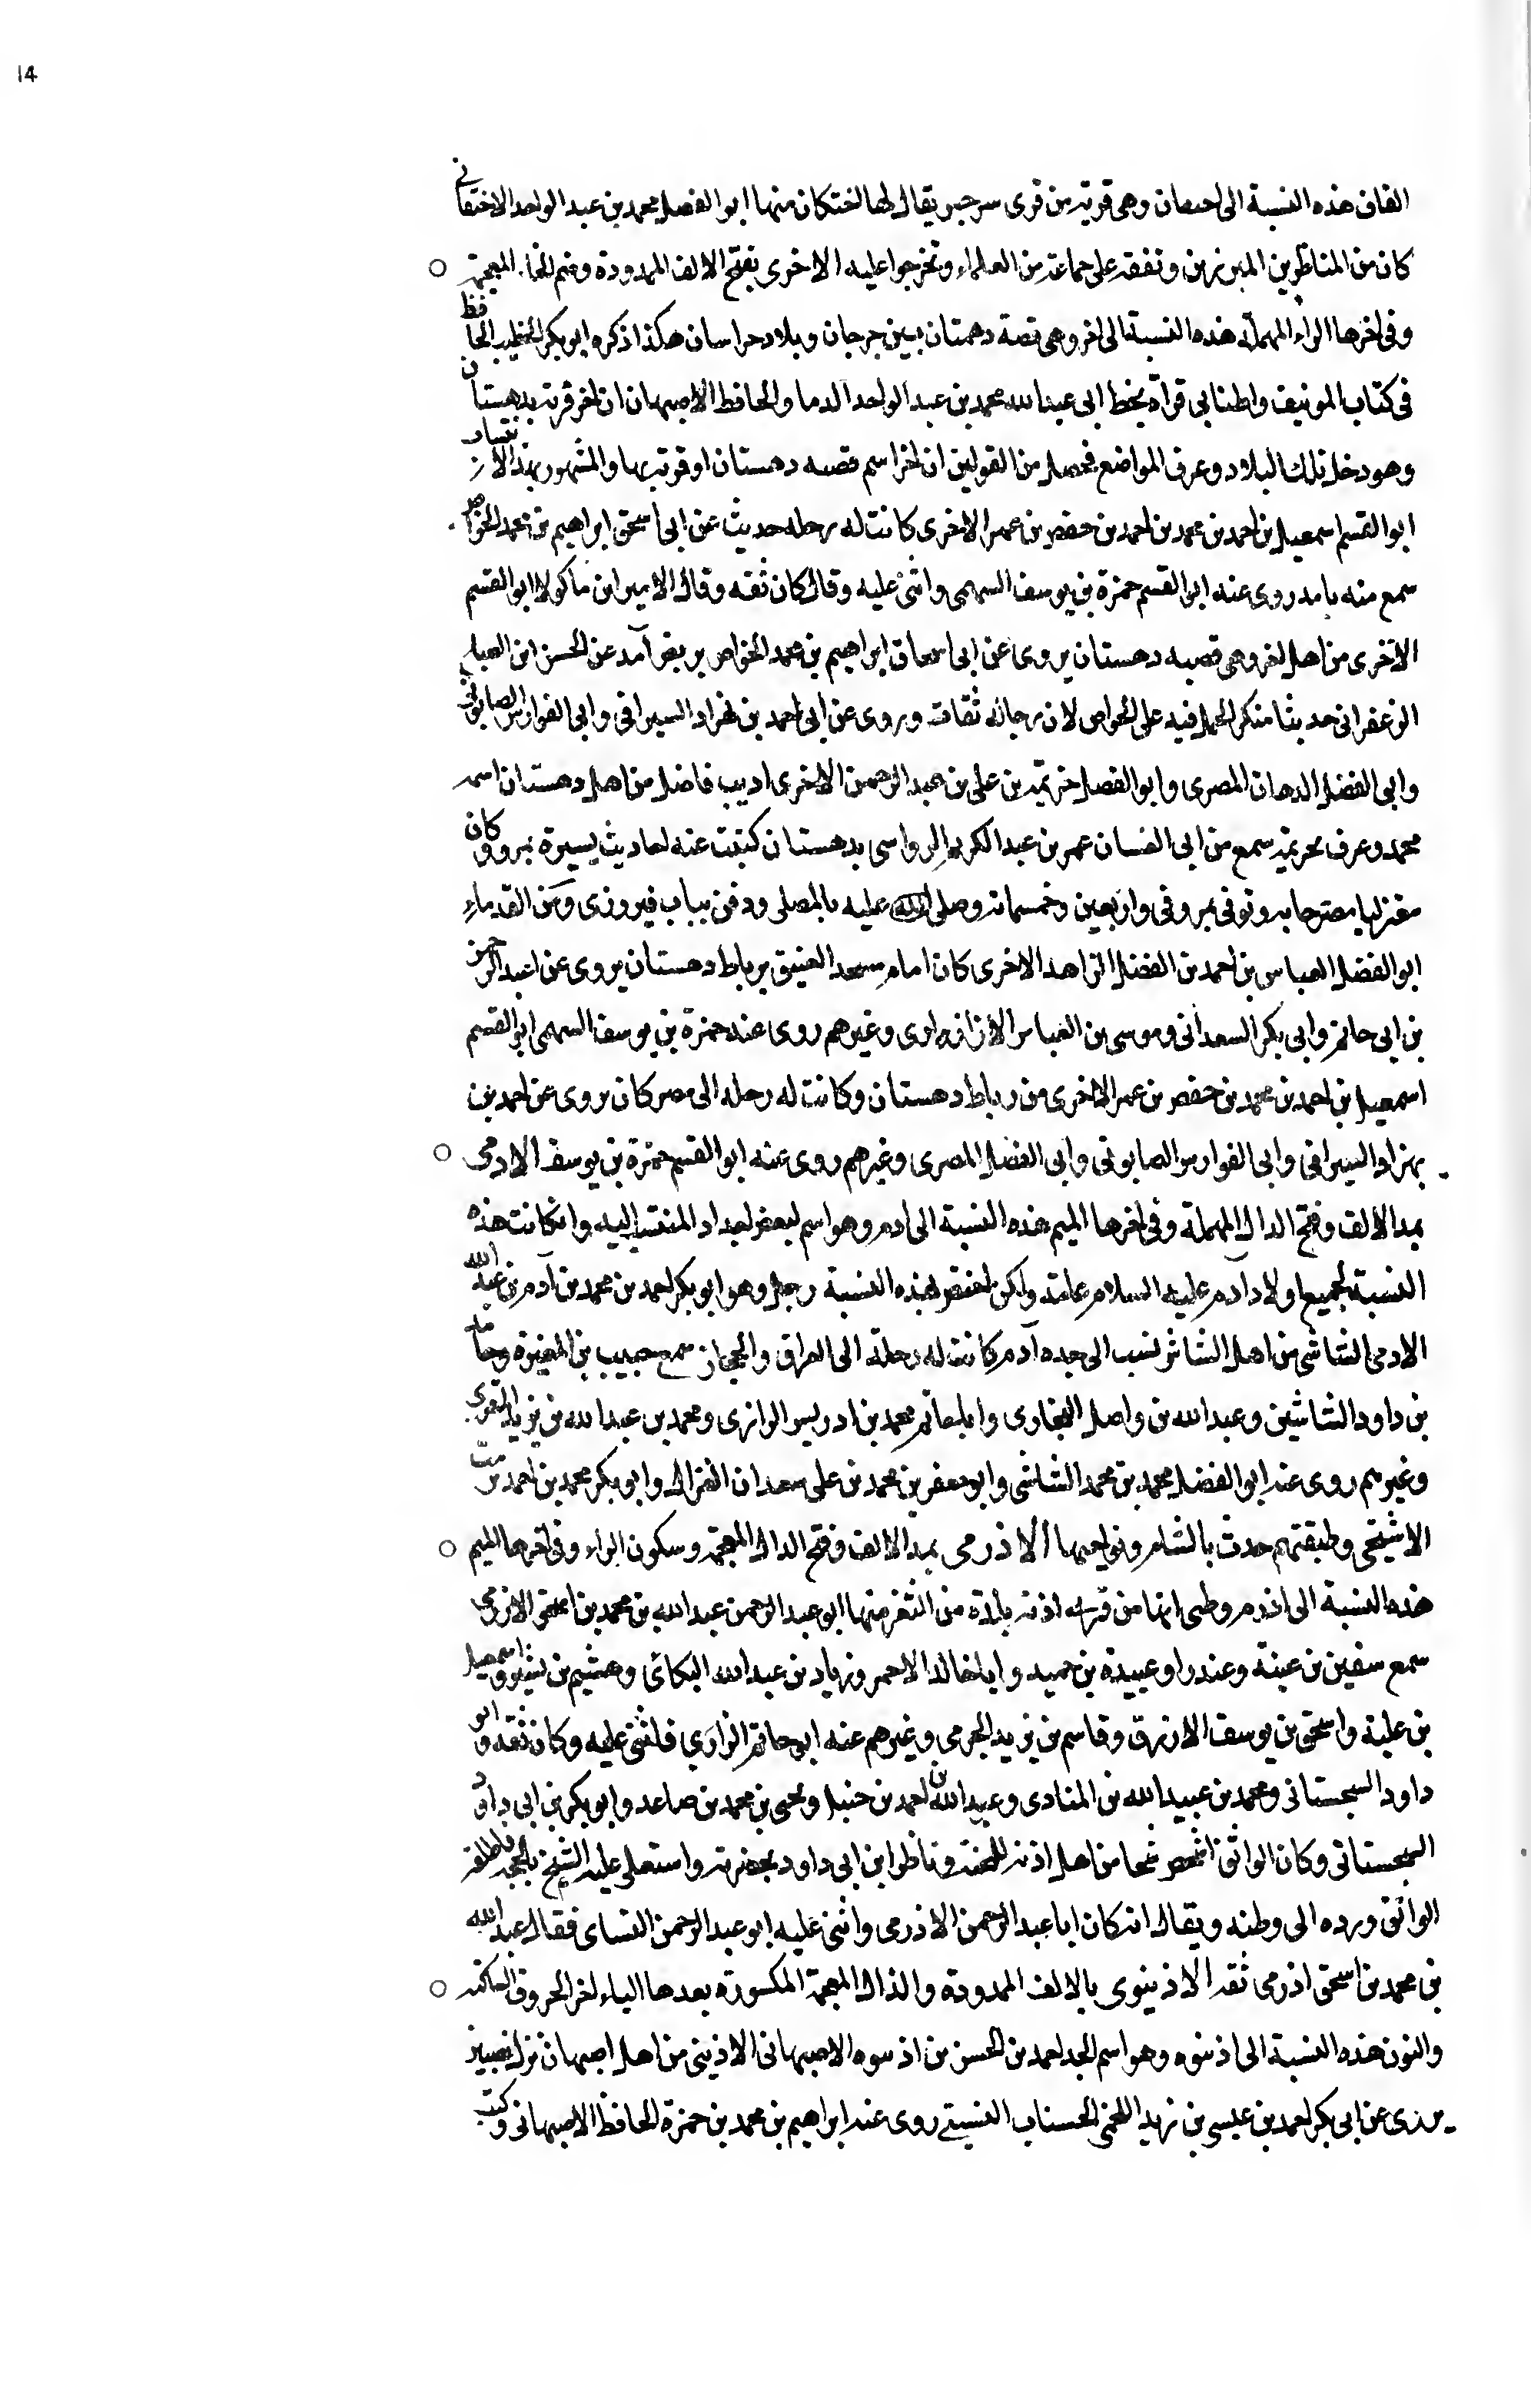 14
القاف هذه النسبة الى احتعان وهى قرية من قرى سرخس يقال لها اختكان منها ابو الفضل محمد بن عبد الواحد الاختقانى
كان من المناظرين المبرزين وتفقه على جماعة من العلماء وتخرجوا عليه الاخرى بفتح الالف الممدودة وضم الخاء المعجمة
وفى اخرها الراء المهملة هذه النسبة الى اخر وهى قصبة دهستان بين جرجان وبلاد خراسان هكذا ذكره ابو بكر الخطيب الحافظ
فى كتاب الموتنف وظننا بى قراة بخط ابى عبد الله محمد بن عبد الواحد الدقاق والحافظ الاصبهان ان اخر قرية بدهستان
وهو دخل تلك البلاد وعرف المواضع فحصل من القولين ان اخر اسم قصبه دهستان او قرية بها والمشهور بهذا الانتساب
ابو القسم اسمعيل بن احمد بن محمد بن احمد بن حفص بن عمر الاخرى كانت له رحله حديث عن ابى اسحق ابراهيم بن محمد الخواص
سمع منه بامد روى عنه ابو القسم حمزة بن يوسف السهمى واثنى عليه وقال كان ثقه وقال الامير ابن ماكولا ابو القسم
الاخرى من اهل اخر وهى قصبه دهستان يروى عن ابى اسحاق ابراهيم بن محمد الخواص بربض آمد عن الحسن ابن الصباح
الزعفرانى حديثا منكر الحمل فيه على الخواص لان رجاله ثقات وروى عن ابى احمد بن بهزاد السيرافى وابى الفوارس الصابونى
وابى الفضل الدهان المصرى وابو الفضل خزيمة بن على بن عبد الرحمن الاخرى اديب فاضل من اهل دهستان اسمه
محمد وعرف بخزيمة سمع من ابى الفتيان عمر بن عبد الكريم الرواسى بدهستان كتبت عنه احاديث يسيرة بمرو وكان
معتزليا وتوفى بمرو فى واربعين وخمسمائة وصلى الله عليه بالمصلى ودفن بباب فيروزى ومن القدماء
ابو الفضل العباس بن احمد بن الفضل الزاهد الاخرى كان امام مسجد العتيق برباط دهستان يروى عن عبد الرحمن
بن ابى حاتم وابى بكر السعدانى وموسى بن العباس الازاذوارى وغيرهم روى عنه حمزة بن يوسف السهمى ابو القسم
اسمعيل بن احمد بن محمد بن حفص بن عمر الاخرى من رباط دهستان وكانت له رحله الى مصر كان يروى عن احمد بن
بهزاد السيرافى وابى الفوارس الصابونى وابى الفضل المصرى وغيرهم روى عنه ابو القسم حمزة بن يوسف الادمى
بمد الالف وفتح الدال المهملة وفى اخرها الميم هذه النسبة الى ادم وهو اسم لبعض اجداد المنتسب اليه وان كانت هذه
النسبة لجميع اولاد آدم عليه السلام عامة ولكن اختص بهذه النسبة رجل وهو ابو بكر احمد بن محمد بن آدم بن عبد الله
الادمى الشاشى من اهل الشاش نسب الى جده آدم كانت له رحلة الى العراق والحجاز سمع حبيب بن المغيرة وحامد
بن داود الشاشين وعبد الله بن واصل البخارى وابا حاتم محمد بن ادريس الرازى ومحمد بن عبد الله بن يزيد المقرى
وغيرهم روى عنه ابو الفضل محمد بن محمد الشاشى وابو جعفر بن محمد بن على سعدان الغزال وابو بكر محمد بن احمد بن مت
الاشتيخى وطبقتهم حدث بالشام ونواحيها الاذرمى بمد الالف وفتح الدال المعجمة وسكون الراء وفى اخرها الميم
هذه النسبة الى اذرم وظنى انها من قرى اذنة بلدة من الثغر منها ابو عبد الرحمن عبد الله بن محمد بن اسحق الاذرمى
سمع سفين بن عينة وغندرا وعبيدة بن حميد وابا خالد الاحمر وزياد بن عبد الله البكائى وهشيم بن بشير واسمعيل
بن علية واسحق بن يوسف الازرق وقاسم بن يزيد الجرمى وغيرهم عنه ابو حاتم الرازى فاثنى عليه وكان ثقه وابو
داود السجستانى ومحمد بن عبيد الله بن المنادى وعبد الله بن احمد بن حنبل ويحيى بن محمد بن صاعد وابو بكر بن ابى داود
السجستانى وكان الواثق اشخص شيخا من اهل اذنة للمحنة وناظر ابن ابى داود بحضرته واستعلى عليه الشيخ بالحجة فاطلقه
الواثق ورده الى وطنه ويقال انه كان ابا عبد الرحمن الاذرمى واثنى عليه ابو عبد الرحمن النساى فقال عبد الله
بن محمد بن اسحق اذرمى ثقة الاذينوى بالالف الممدودة والذال المعجمة المكسورة بعدها الياء اخر الحروف الساكنة
والنون هذه النسبة الى اذينوه وهو اسم لجد احمد بن الحسن بن اذينوه الاصبهانى الاذينى من اهل اصبهان نزل نصيبين
يروى عن ابى بكر احمد بن عيسى بن زيد اللخمى الخشاب التنيسى روى عنه ابراهيم بن محمد بن حمزة الحافظ الاصبهانى وكتب